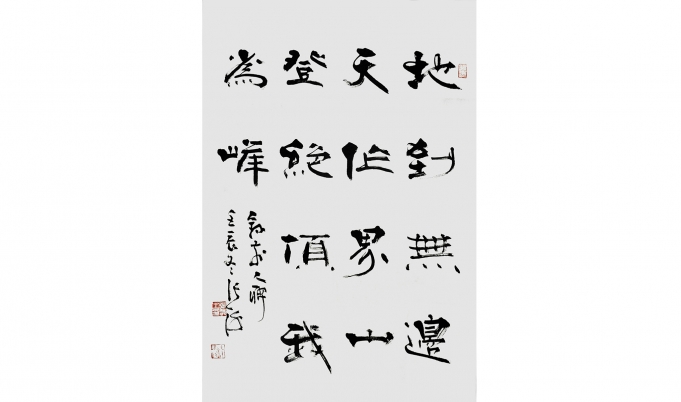 地到無邊
天作界山
登絕頂我
為峰
壬辰冬